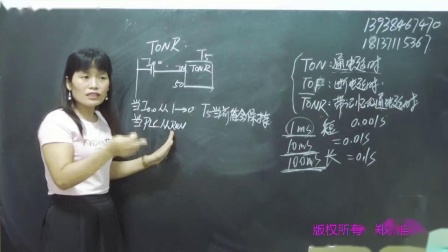 13938467470
18137115367
TONR:
T5
IN TONR
50
当I0.0从1→0 T5当前值会保持
当PLC从RUN
TON:通电延时
TOF:断电延时
TONR:带记忆的通电延时
1ms 短 0.001S
10ms =0.01S
100ms 长 =0.1S
版权所有